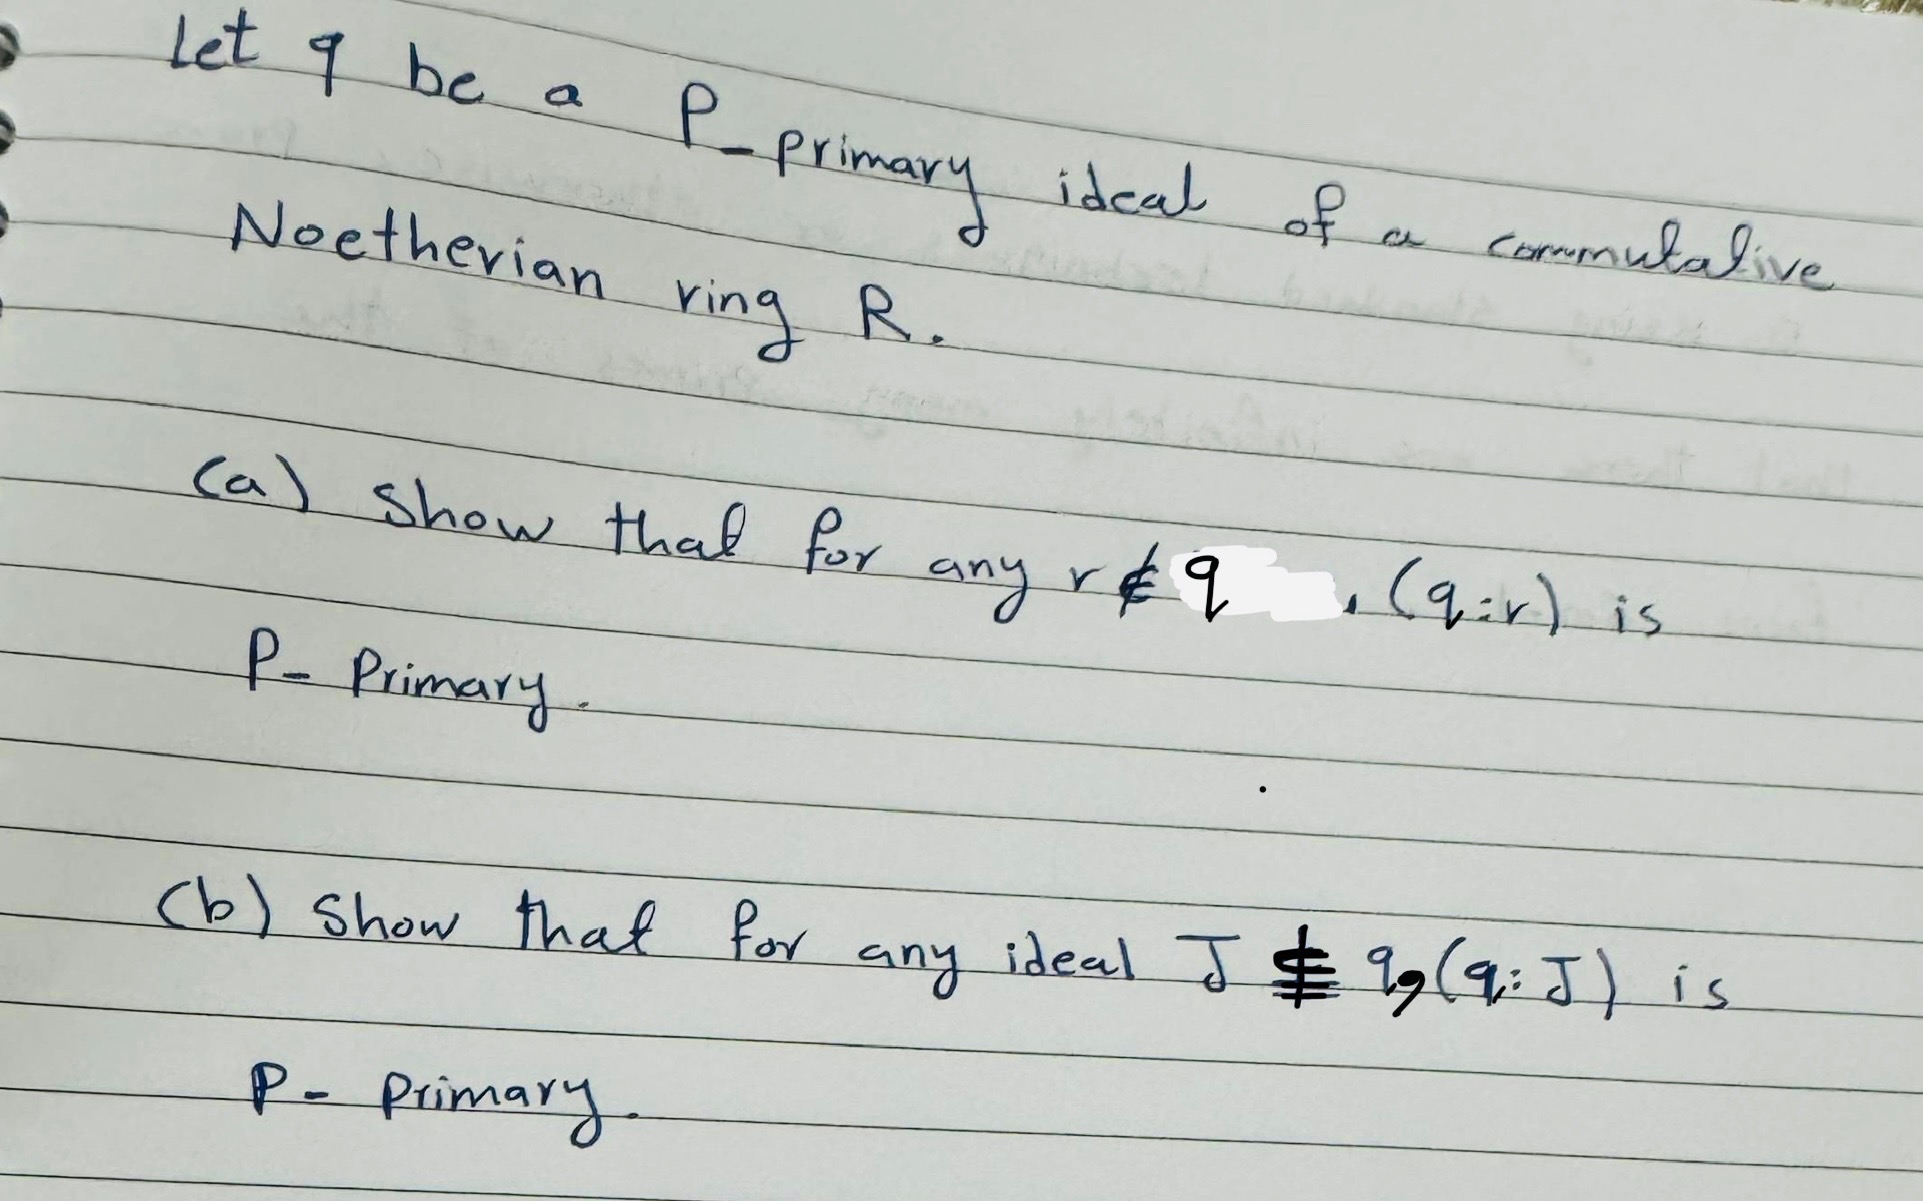 Let q be a P-primary ideal of a commutative
Noetherian ring R.
(a) Show that for any r ∉ q, (q:r) is
P- Primary.
(b) Show that for any ideal J ⊈ q, (q:J) is
P- Primary.